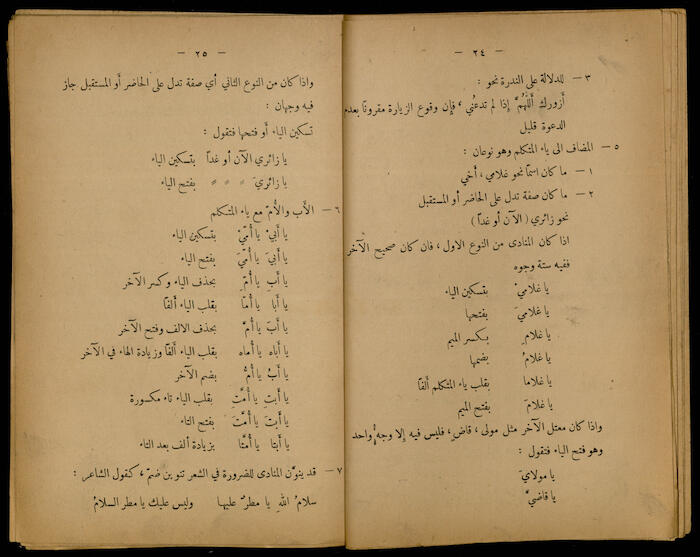 — ٢٤ —
٣ — للدلالة على الندرة نحو :
أزورك اَللّٰهُمَّ إذا لم تدعُني ، فإن وقوع الزيارة مقرونًا بعدم
الدعوة قليل
٥ — المضاف الى ياء المتكلم وهو نوعان :
١ — ما كان اسمًا نحو غلامي ، أخي
٢ — ما كان صفة تدل على الحاضر أو المستقبل
نحو زائري ( الآن أو غداً )
اذا كان المنادى من النوع الاول ، فان كان صحيح الآخر
ففيه ستة وجوه
يا غلاميْ بتسكين الياء
يا غلاميَ بفتحها
يا غلامِ بكسر الميم
يا غلامُ بضمها
يا غلاما بقلب ياء المتكلم ألفًا
يا غلامَ بفتح الميم
واذا كان معتل الآخر مثل مولى ، قاضٍ ، فليس فيه إلا وجهٌ واحد
وهو فتح الياء فتقول :
يا مولايَ
يا قاضيَّ
— ٢٥ —
واذا كان من النوع الثاني أي صفة تدل على الحاضر أو المستقبل جاز
فيه وجهان :
تسكين الياء أو فتحها فتقول :
يا زائري الآن أو غداً بتسكين الياء
يا زائريَ 〃 〃 〃 بفتح الياء
٦ — الأب والأمّ مع ياء المتكلم
يا أبيْ يا أميْ بتسكين الياء
يا أبيَ يا أميَ بفتح الياء
يا أبِ يا أمِّ بحذف الياء وكسر الآخر
يا أبا يا أمّا بقلب الياء ألفًا
يا أبَ يا أمَّ بحذف الالف وفتح الآخر
يا أباه يا أماه بقلب الياء ألفًا وزيادة الهاء في الآخر
يا أبُ يا أمُّ بضم الآخر
يا أبتِ يا أمَّتِ بقلب الياء تاء مكسورة
يا أبتَ يا أمَّتَ بفتح التاء
يا أبتا يا أمَّتا بزيادة ألف بعد التاء
٧ — قد ينوَّن المنادى للضرورة في الشعر تنوين ضمّ ، كقول الشاعر :
سلامُ اللهِ يا مطرٌ عليها وليس عليك يا مطر السلامُ